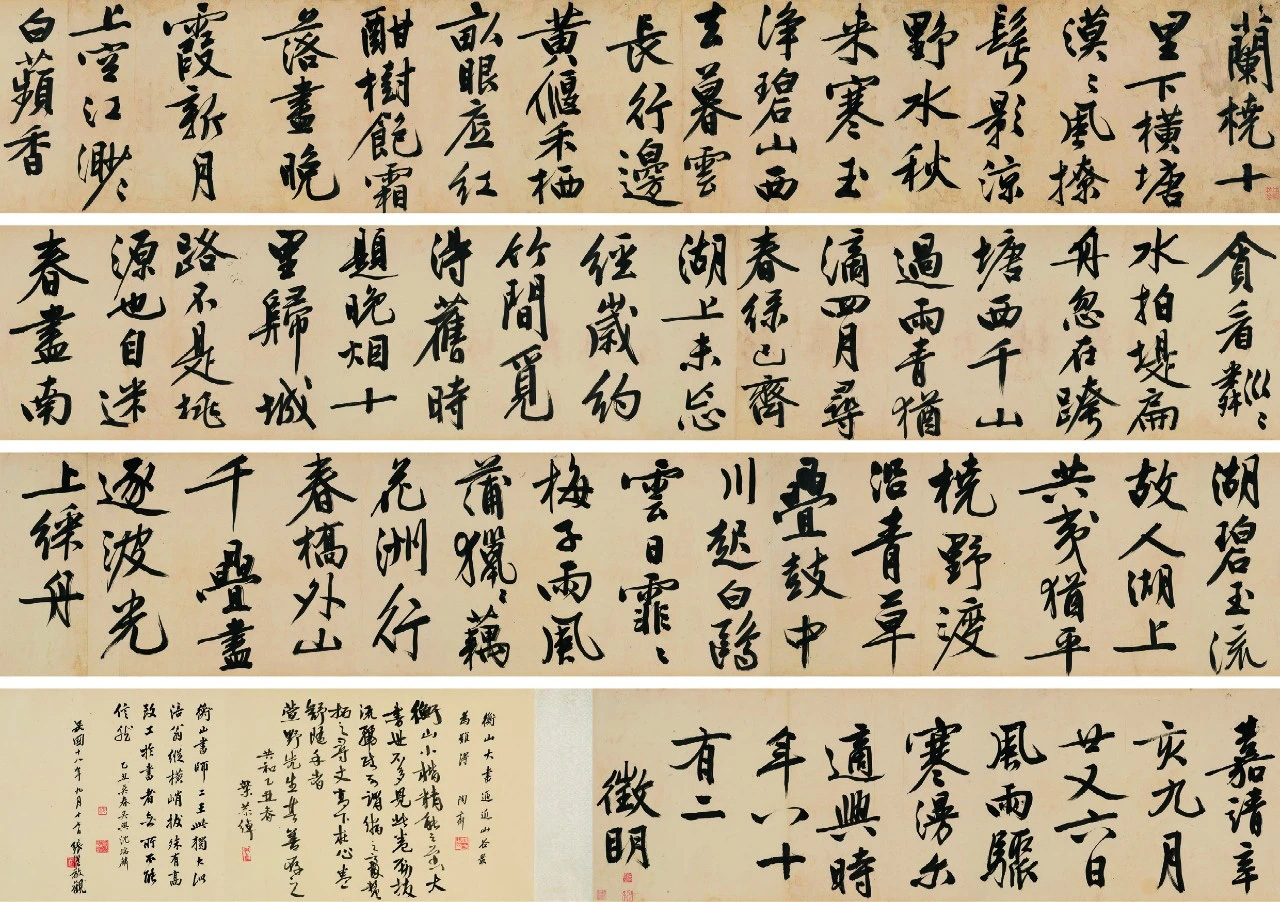 蘭橈十
里下橫塘
漠〻風撩
髩影涼
野水秋
来寒玉
淨碧山西
去暮雲
長行邊
黃偃禾栖
畝眼底紅
酣樹飽霜
落盡晚
霞新月
上空江渺〻
白蘋香
貪看粼〻
水拍堤扁
舟忽在跨
塘西千山
過雨青猶
滴四月尋
春綠已齊
湖上未忘
經歲約
竹間覓
得舊時
題晚烟十
里歸城
路不是桃
源也自迷
春盡南
湖碧玉流
故人湖上
共夷猶平
橈野渡
沿青草
疊鼓中
川起白鷗
雲日霏〻
梅子雨風
蒲獵〻藕
花洲行
春橋外山
千疊盡
逐波光
上綵舟
嘉靖辛
亥九月
廿又六日
風雨驟
寒漫尔
適興時
年八十
有二
徵明
衡山大書逼近山谷最
為難得 陶齋
衡山小楷精能之至大
書世不多見此卷
共和乙丑春
葉恭綽
衡山書師二王此獨大似
涪翁縱橫峭拔殊有高
致工於書者無所不能
信然 乙丑春吳興沈瑞麟
民國十八年九月十六日 敬觀